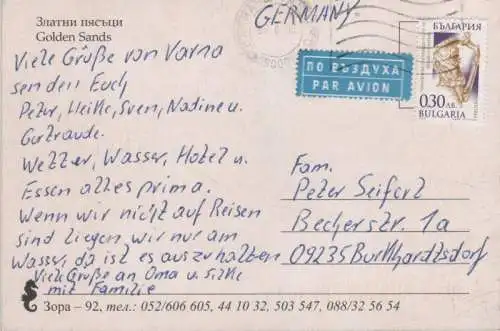 Златни пясъци
Golden Sands
GERMANY
БЪЛГАРИЯ
0.30 лв.
BULGARIA
ПО ВЪЗДУХА
PAR AVION
Viele Grüße von Varna
senden Euch
Peter, Heike, Sven, Nadine u.
Gertraude.
Wetter, Wasser, Hotel u.
Essen alles prima.
Wenn wir nicht auf Reisen
sind liegen wir nur am
Wasser, da ist es auszuhalten
Viele Grüße an Oma u. Silke
mit Familie
Fam.
Peter Seifert
Becherstr. 1a
09235 Burkhardtsdorf
Зора – 92, тел.: 052/606 605, 44 10 32, 503 547, 088/32 56 54